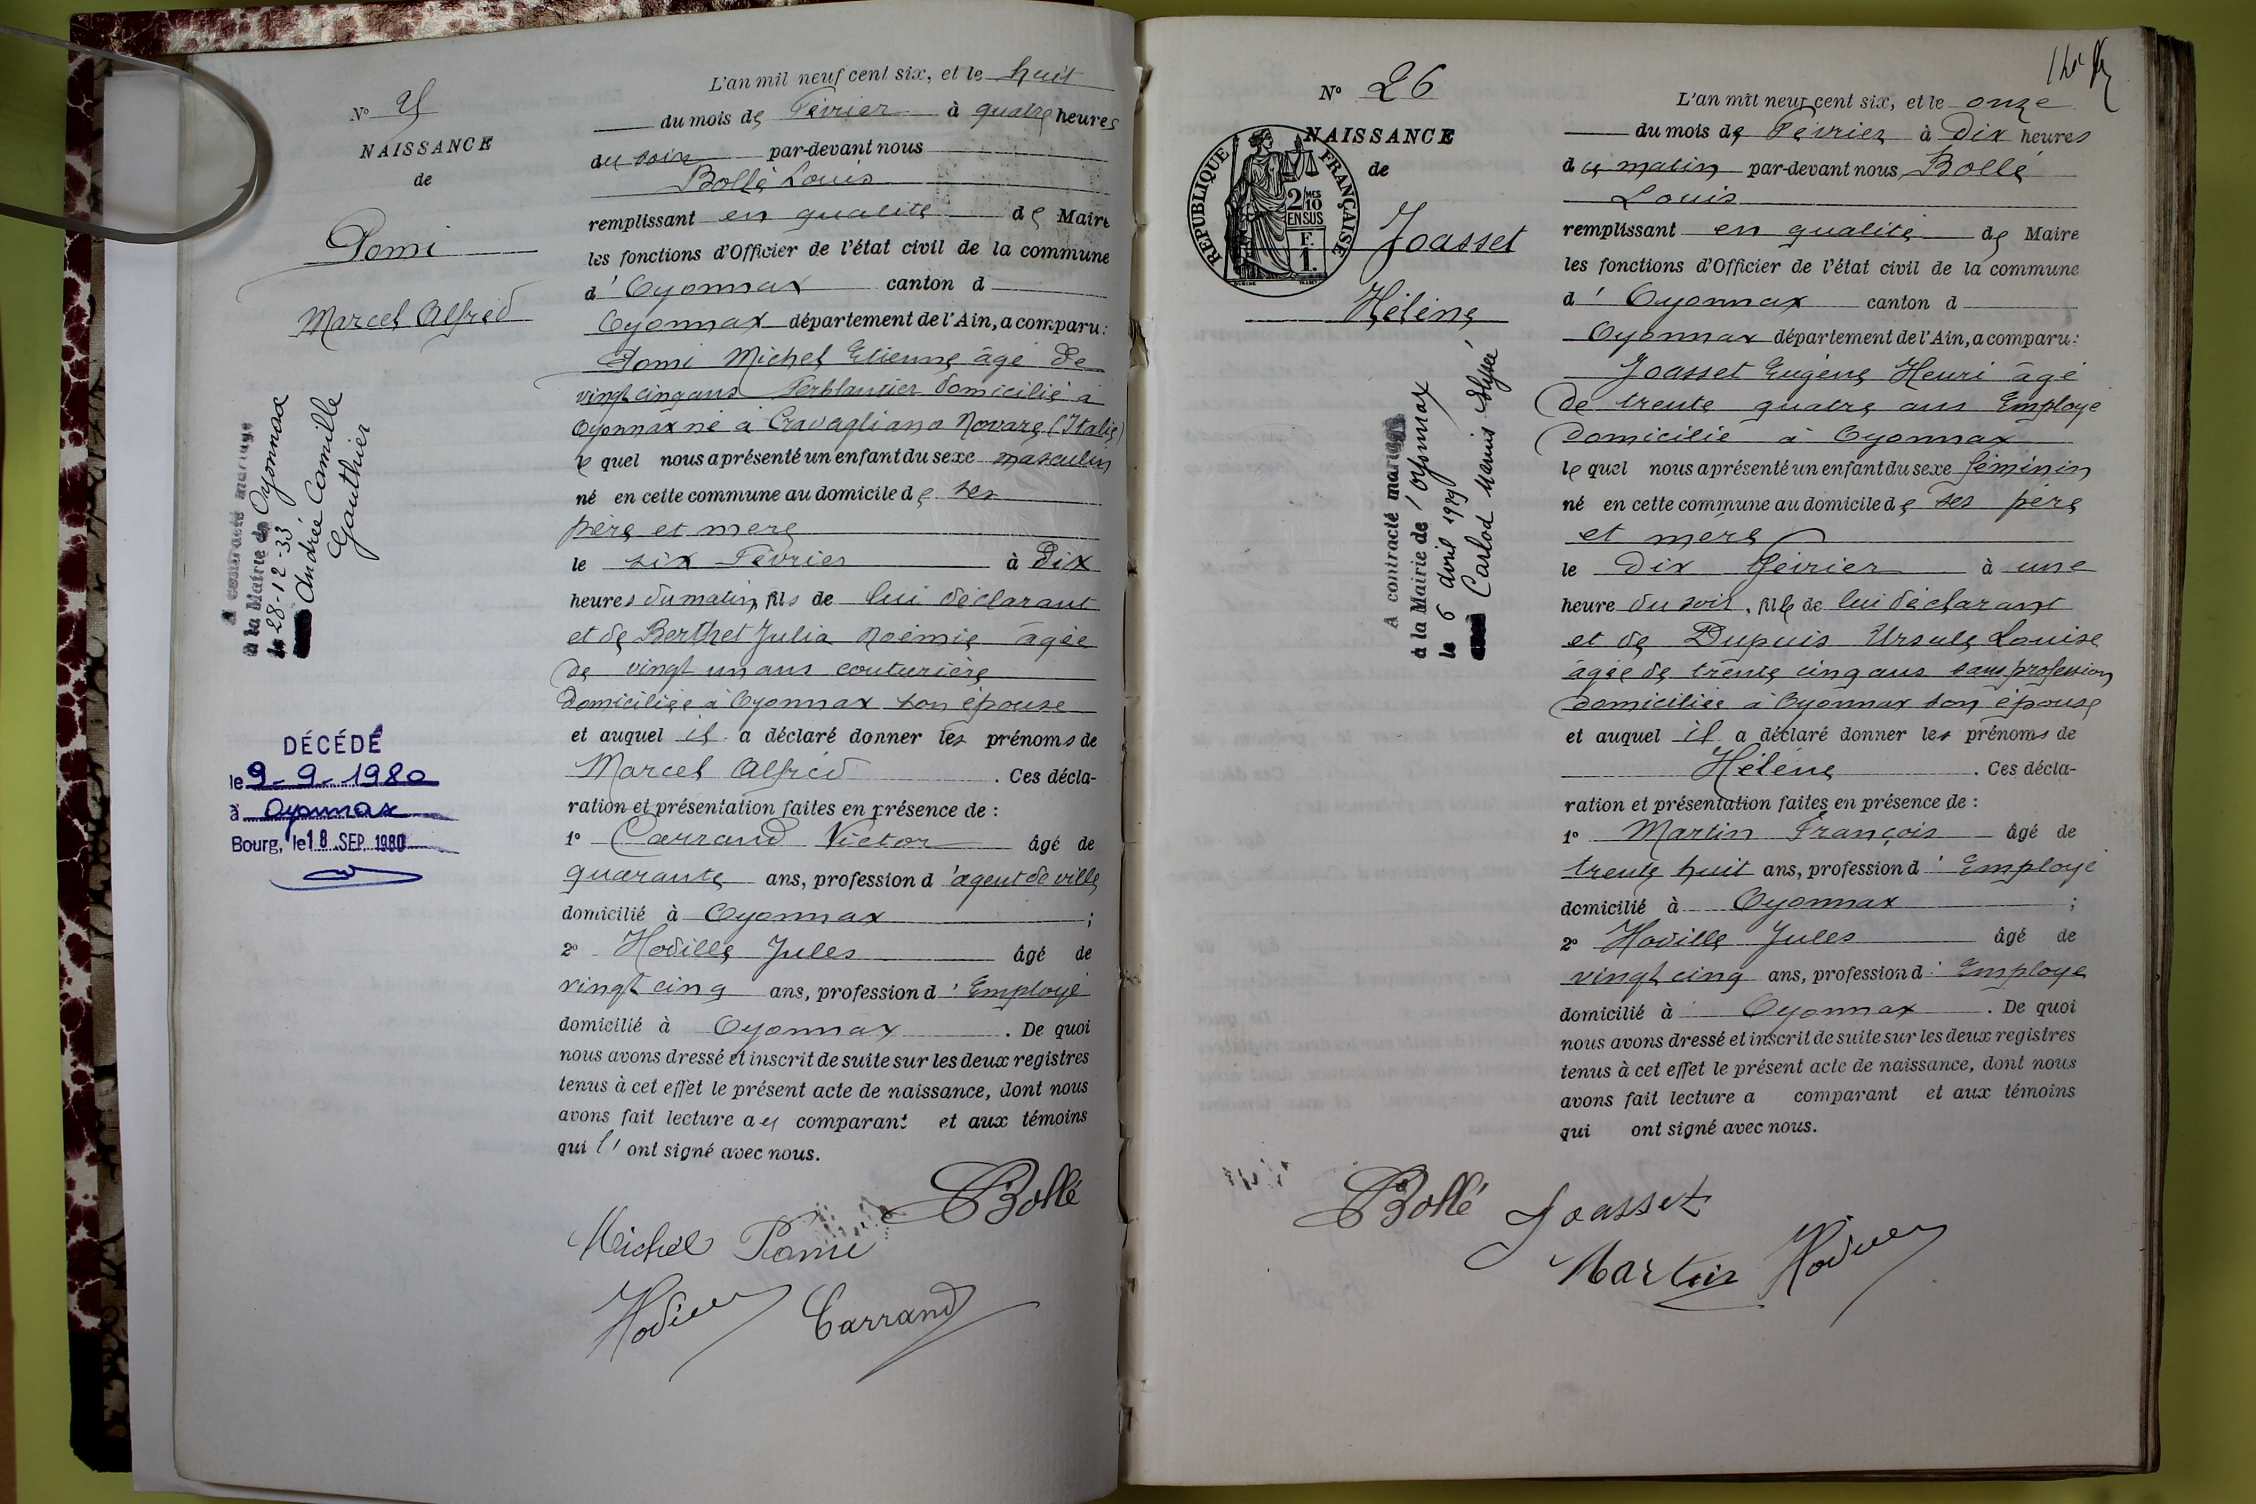 N° 25
NAISSANCE
de
Pomi
Marcel Alfred
A contracté mariage
à la Mairie de Oyonnax
le 28-12-33
Andrée Camille
Gauthier
DÉCÉDÉ
le 9-9-1980
à Oyonnax
Bourg, le 18 SEP. 1980
L'an mil neuf cent six, et le huit
du mois de Février à quatre heures
du soir par-devant nous
Bollé Louis
remplissant en qualité de Maire
les fonctions d'Officier de l'état civil de la commune
d'Oyonnax canton d
Oyonnax département de l'Ain, a comparu :
Pomi Michel Etienne âgé de
vingt cinq ans Ferblantier domicilié à
Oyonnax né à Cravagliano Novare (Italie)
le quel nous a présenté un enfant du sexe masculin
né en cette commune au domicile de ses
père et mère
le six Février à Dix
heures du matin, fils de lui déclarant
et de Berthet Julia Noémie âgée
de vingt un ans couturière
domiciliée à Oyonnax son épouse
et auquel il a déclaré donner les prénoms de
Marcel Alfred. Ces décla-
ration et présentation faites en présence de :
1° Carrand Victor âgé de
quarante ans, profession d'agent de ville
domicilié à Oyonnax ;
2° Hodille Jules âgé de
vingt cinq ans, profession d'Employé
domicilié à Oyonnax. De quoi
nous avons dressé et inscrit de suite sur les deux registres
tenus à cet effet le présent acte de naissance, dont nous
avons fait lecture au comparant et aux témoins
qui l'ont signé avec nous.
Bollé
Michel Pomi
Hodille Carrand
N° 26
NAISSANCE
de
REPUBLIQUE FRANÇAISE
2/10 MES
EN SUS
F.
1.
Joasset
Hélène
A contracté mariage
à la Mairie de l'Oyonnax
le 6 avril 1929
Carlod Marius
L'an mil neuf cent six, et le onze
du mois de Février à Dix heures
du matin par-devant nous Bollé
Louis
remplissant en qualité de Maire
les fonctions d'Officier de l'état civil de la commune
d'Oyonnax canton d
Oyonnax département de l'Ain, a comparu :
Joasset Eugène Henri âgé
de trente quatre ans Employé
domicilié à Oyonnax
le quel nous a présenté un enfant du sexe féminin
né en cette commune au domicile de ses père
et mère
le Dix février à une
heure du soir, fille de lui déclarant
et de Dupuis Ursule Louise
âgée de trente cinq ans sans profession
domiciliée à Oyonnax son épouse
et auquel il a déclaré donner les prénoms de
Hélène. Ces décla-
ration et présentation faites en présence de :
1° Martin François âgé de
trente huit ans, profession d'Employé
domicilié à Oyonnax ;
2° Hodille Jules âgé de
vingt cinq ans, profession d'Employé
domicilié à Oyonnax. De quoi
nous avons dressé et inscrit de suite sur les deux registres
tenus à cet effet le présent acte de naissance, dont nous
avons fait lecture a comparant et aux témoins
qui ont signé avec nous.
Bollé Joasset
Martin Hodille